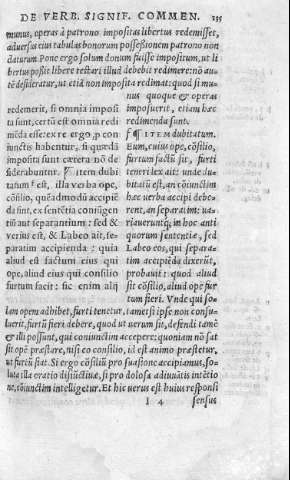 DE VERB. SIGNIF. COMMEN. 135
munus, operas à patrono impositas libertus redemisset,
aduersus eius tabulas bonorum possessionem patrono non
daturum. Pone ergo solum donum fuisse impositum, ut li
bertus possit libere testari illud debebit redimere: nō au-
tē desideratur, ut etiā non imposita redimat: quòd si mu-
redemerit, si omnia imposi
ta sunt, certū est omnia redi
mēda esse: ex re ergo, p con
iunctis habentur, si quædā
imposita sunt cætera nō de
siderabuntur. ¶ Item dubi
tatum est, illa verba ope,
cōsilio, quēadmodū accipiē
da sint, ex sentētia coniūgen
tiū aut separantium: sed &
verius est, & Labeo ait, se-
paratim accipienda: quia
aliud est factum eius qui
ope, aliud eius qui consilio
furtum facit: sic enim alij
nus quoque & operas
imposuerit, etiam hæc
redimenda sunt.
f ¶ ITEM dubitatum.
Eum, cuius ope, cōsilio,
furtum factū sit, furti
teneri lex ait: unde du-
bitatū est, an cōiunctim
hæc uerba accipi debe-
rent, an separatim: ua-
riaueruntq; in hoc anti
quorum sententiæ, sed
Labeo eos, qui separa-
tim accipiēda dixerūt,
probauit: quod aliud
sit cōsilio, aliud ope fur
tum fieri. Vnde qui so-
lam opem adhibet, furti tenetur, tametsi ipse non consu-
luerit, furtū fieri debere, quod ut uerum sit, defendi tamē
& illi possunt, qui coniunctim accepere: quoniam nō sat
sit opē præstare, nisi eo consilio, id est animo præstetur,
ut furtū fiat. Si ergo cōsiliū pro suasione accipiamus, so-
luta illa oratio disiūctiuæ, si pro dolosa adiuuātis intētio
ne, cōiunctim intelligetur. Et hic uerus est huius responsi
I 4 sensus